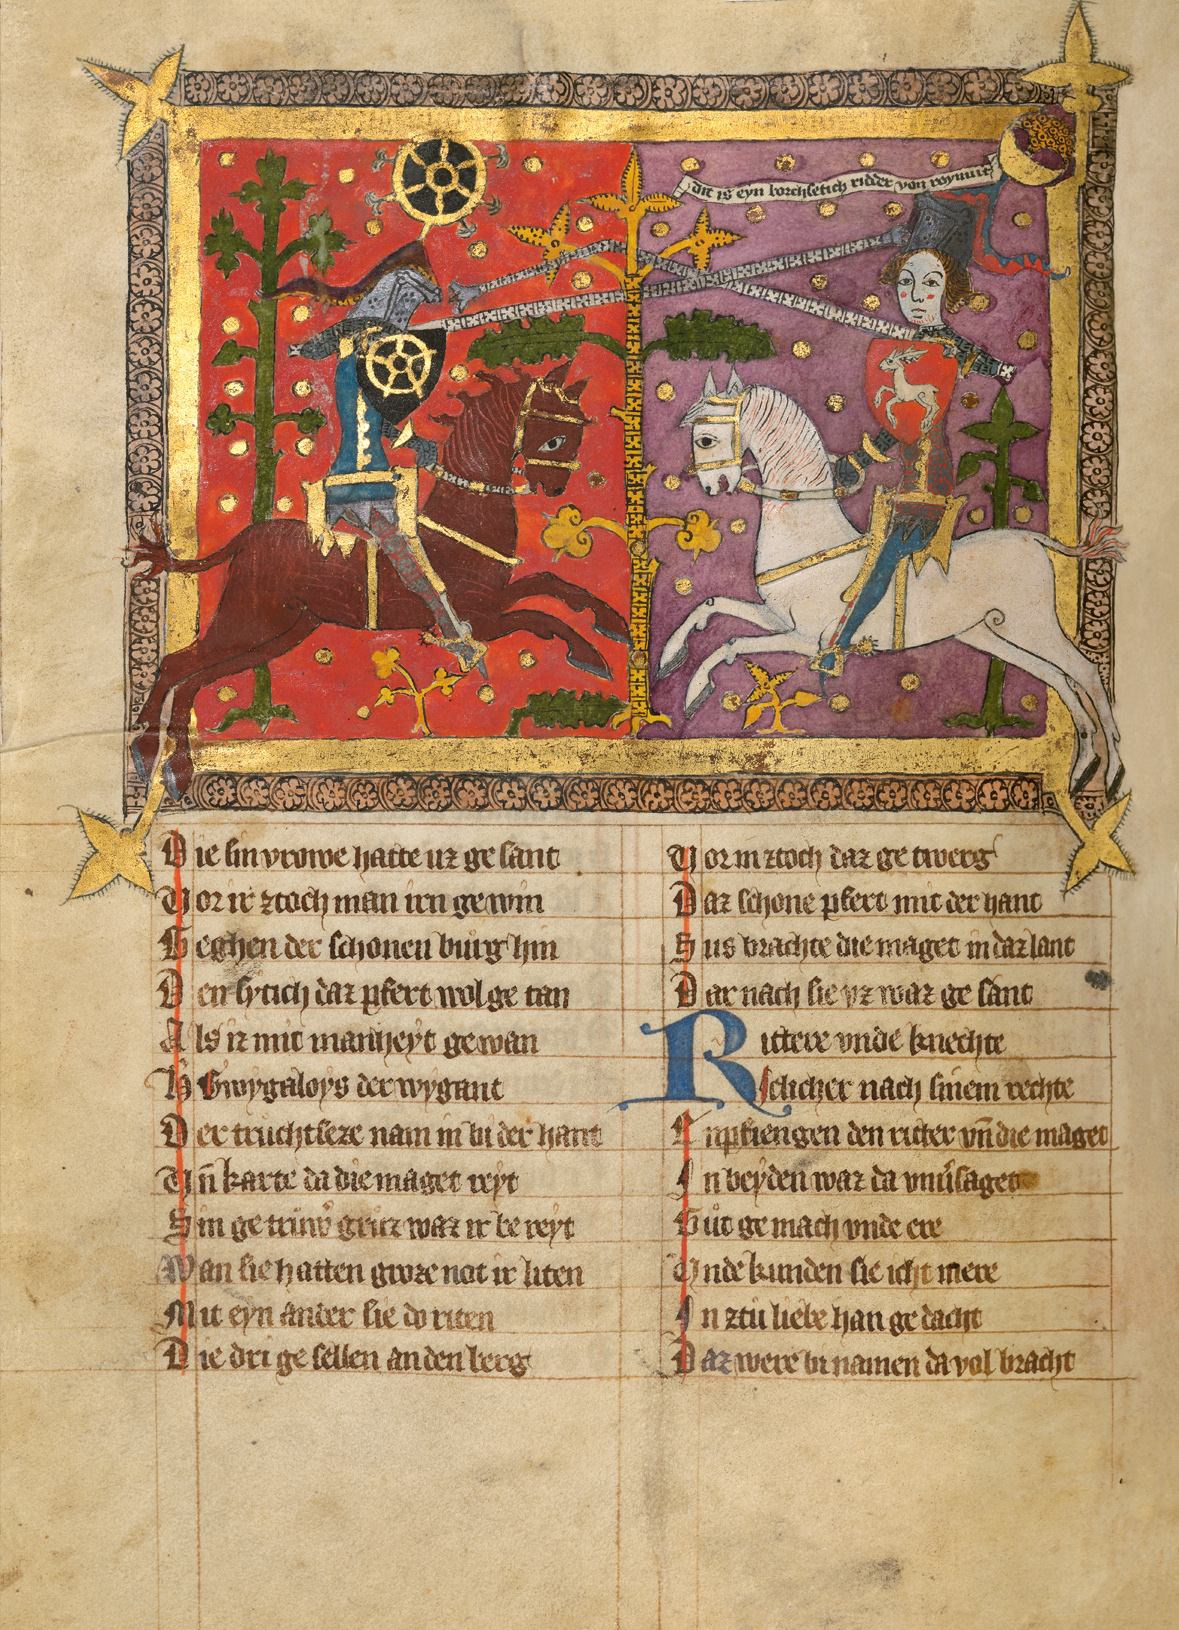 dit is eyn borchsetich ridder von roymunt
Die sin vrowe hatte uz ge sant
Vor ir ztoch man irn gewin
Geghen der schonen burg hin
Den sytich daz pfert wol ge tan
Als iz mit manheyt gewan
H Gwygaloys der wygant
Der truchtseze nam in bi der hant
Vn̄ karte da die maget reyt
Sin ge truwͦ gruz waz ir be reyt
Wan sie hatten groze not ir liten
Mit eyn ander sie do riten
Die dri ge sellen an den berg
Vor in ztoch daz ge twerg
Daz schone pfert mit der hant
Sus brachte die maget in daz lant
Dar nach sie vz waz ge sant
Rittere vnde knechte
Iclicher nach sinem rechte
Enpfiengen den ritter vn̄ die maget
In beyden waz da vnűsaget
Gut ge mach vnde ere
Vnde kunden sie icht mere
In ztu liebe han ge dacht
Daz were bi namen da vol bracht